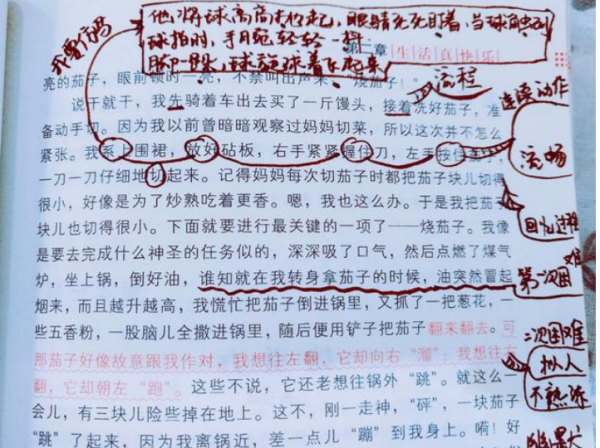 他将球高高
眼睛死死盯着,当球
球拍时,手腕轻轻一抖
第二章 生活真快乐
亮的茄子,眼前顿时一亮,不禁叫出声来:“烧茄子!”
流程
说干就干,我先骑着车出去买了一斤馒头,接着洗好茄子,准
连续动作
备动手切。因为我以前曾暗暗观察过妈妈切菜,所以这次并不怎么
紧张。我系上围裙,放好砧板,右手紧紧握住刀,左手按住茄子,
流畅
一刀一刀仔细地切起来。记得妈妈每次切茄子时都把茄子块儿切得
很小,好像是为了炒熟吃着更香。嗯,我也这么办。于是我把茄子
块儿也切得很小。下面就要进行最关键的一项了——烧茄子。我像
是要去完成什么神圣的任务似的,深深吸了口气,然后点燃了煤气
炉,坐上锅,倒好油,谁知就在我转身拿茄子的时候,油突然冒起
第一次困难
烟来,而且越升越高,我慌忙把茄子倒进锅里,又抓了一把葱花,一
些五香粉,一股脑儿全撒进锅里,随后便用铲子把茄子翻来翻去。可
二次困难
那茄子好像故意跟我作对,我想往左翻,它却向右“溜”;我想往右
拟人
翻,它却朝左“跑”。这些不说,它还老想往锅外“跳”。就这么一
不熟练
会儿,有三块儿险些掉在地上。这不,刚一走神,“砰”,一块茄子
“跳”了起来,因为我离锅近,差一点儿“蹦”到我身上。嗬!好